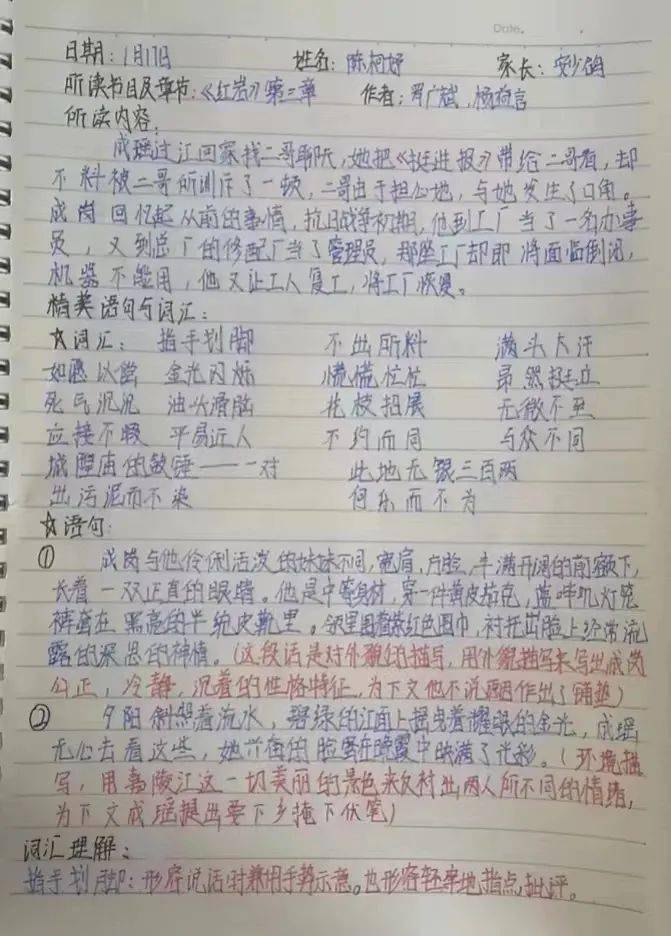 Date.
日期：1月17日 姓名：陈柯妤 家长：
所读书目及章节：《红岩》第三章 作者：罗广斌、杨益言
所读内容：
成瑶过江回家找二哥聊天，她把《挺进报》带给二哥看，却
不料被二哥所训斥了一顿，二哥由于担心她，与她发生了口角。
成岗回忆起从前的事情，抗日战争初期，他到工厂当了一名办事
员，又到总厂的修配厂当了管理员，那座工厂却即将面临倒闭，
机器不能用，他又让工人复工，将工厂恢复。
精美语句与词汇：
☆词汇： 指手划脚 不出所料 满头大汗
如愿以偿 金光闪烁 慌慌忙忙 昂然挺立
死气沉沉 油头滑脑 花枝招展 无微不至
应接不暇 平易近人 不约而同 与众不同
城隍庙的鼓锤——一对 此地无银三百两
出污泥而不染 何乐而不为
☆语句：
① 成岗与他伶俐活泼的妹妹不同，宽肩、方脸、丰满开阔的前额下，
长着一双正直的眼睛。他是中等身材，穿一件黄皮茄克，蓝哔叽灯笼
裤套在黑亮的半统皮靴里。领里围着紫红色围巾，衬托出脸上经常流
露的深思的神情。（这段话是对外貌的描写，用外貌描写来写出成岗
公正，冷静，沉着的性格特征，为下文他不说原因作出了铺垫）
② 夕阳斜照着流水，碧绿的江面上摇曳着耀眼的金光，成瑶
无心去看这些，她兴奋的脸蛋在晚霞中映满了光彩。（环境描
写，用嘉陵江这一切美丽的景色来反衬出两人所不同的情绪，
为下文成瑶提出要下乡掩下伏笔）
词汇理解：
指手划脚：形容说话时兼用手势示意。也形容轻率地指点、批评。